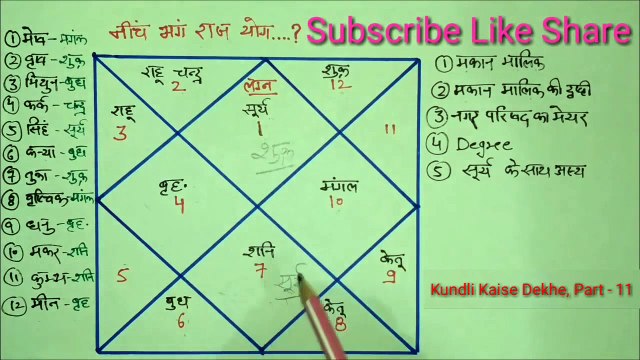 नीच भंग राज योग....?
Subscribe Like Share
① मेष - मंगल
② वृष - शुक्र
③ मिथुन - बुध
④ कर्क - चन्द्र
⑤ सिंह - सूर्य
⑥ कन्या - बुध
⑦ तुला - शुक्र
⑧ वृश्चिक - मंगल
⑨ धनु - वृह.
⑩ मकर - शनि
⑪ कुम्भ - शनि
⑫ मीन - वृह
राहू चन्द्र
2
लग्न
सूर्य
1
शुक्र
शुक्र
12
राहू
3
11
वृह.
4
मंगल
10
शनि
7
सूर्य
5
केतू
9
बुध
6
केतू
8
① मकान मालिक
② मकान मालिक की दृष्टी
③ नगर परिषद का मेयर
④ Degree
⑤ सूर्य के साथ अस्त
Kundli Kaise Dekhe, Part - 11